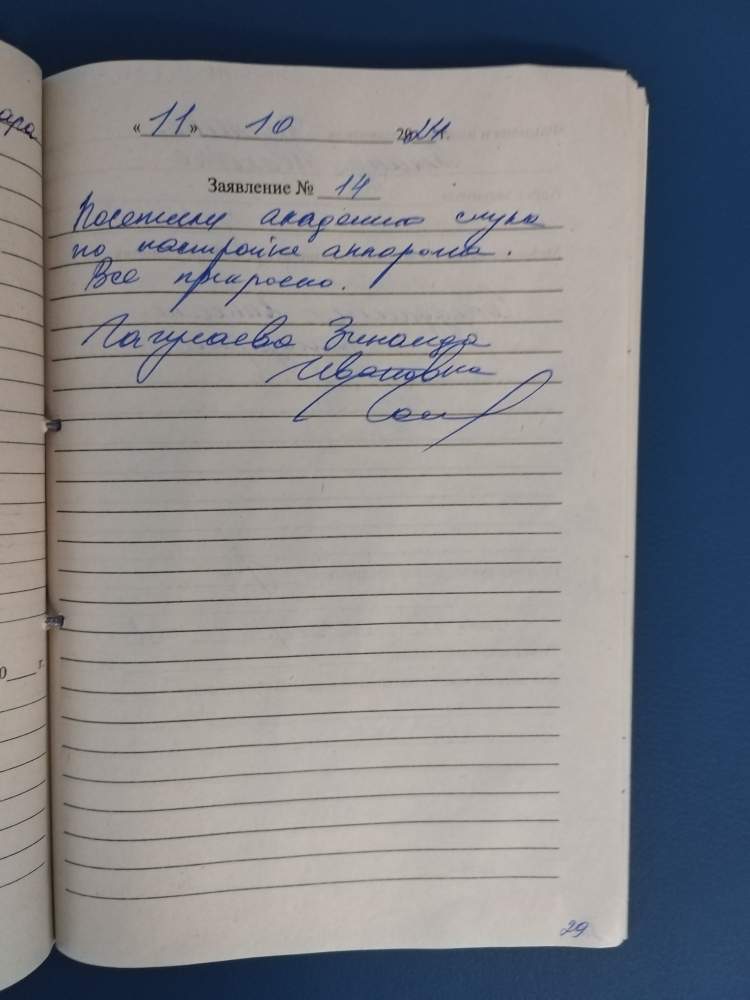 ара
«11» 10 2024 г.
Заявление № 14
Посетили академию слуха
по настройке аппарата.
Все прекрасно.
Зинаида
Ивановна
0 г.
29